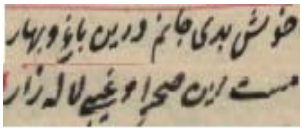 خوش بدی جانم درین باغ و بهار
مست این صحرا و غیبی لاله زار